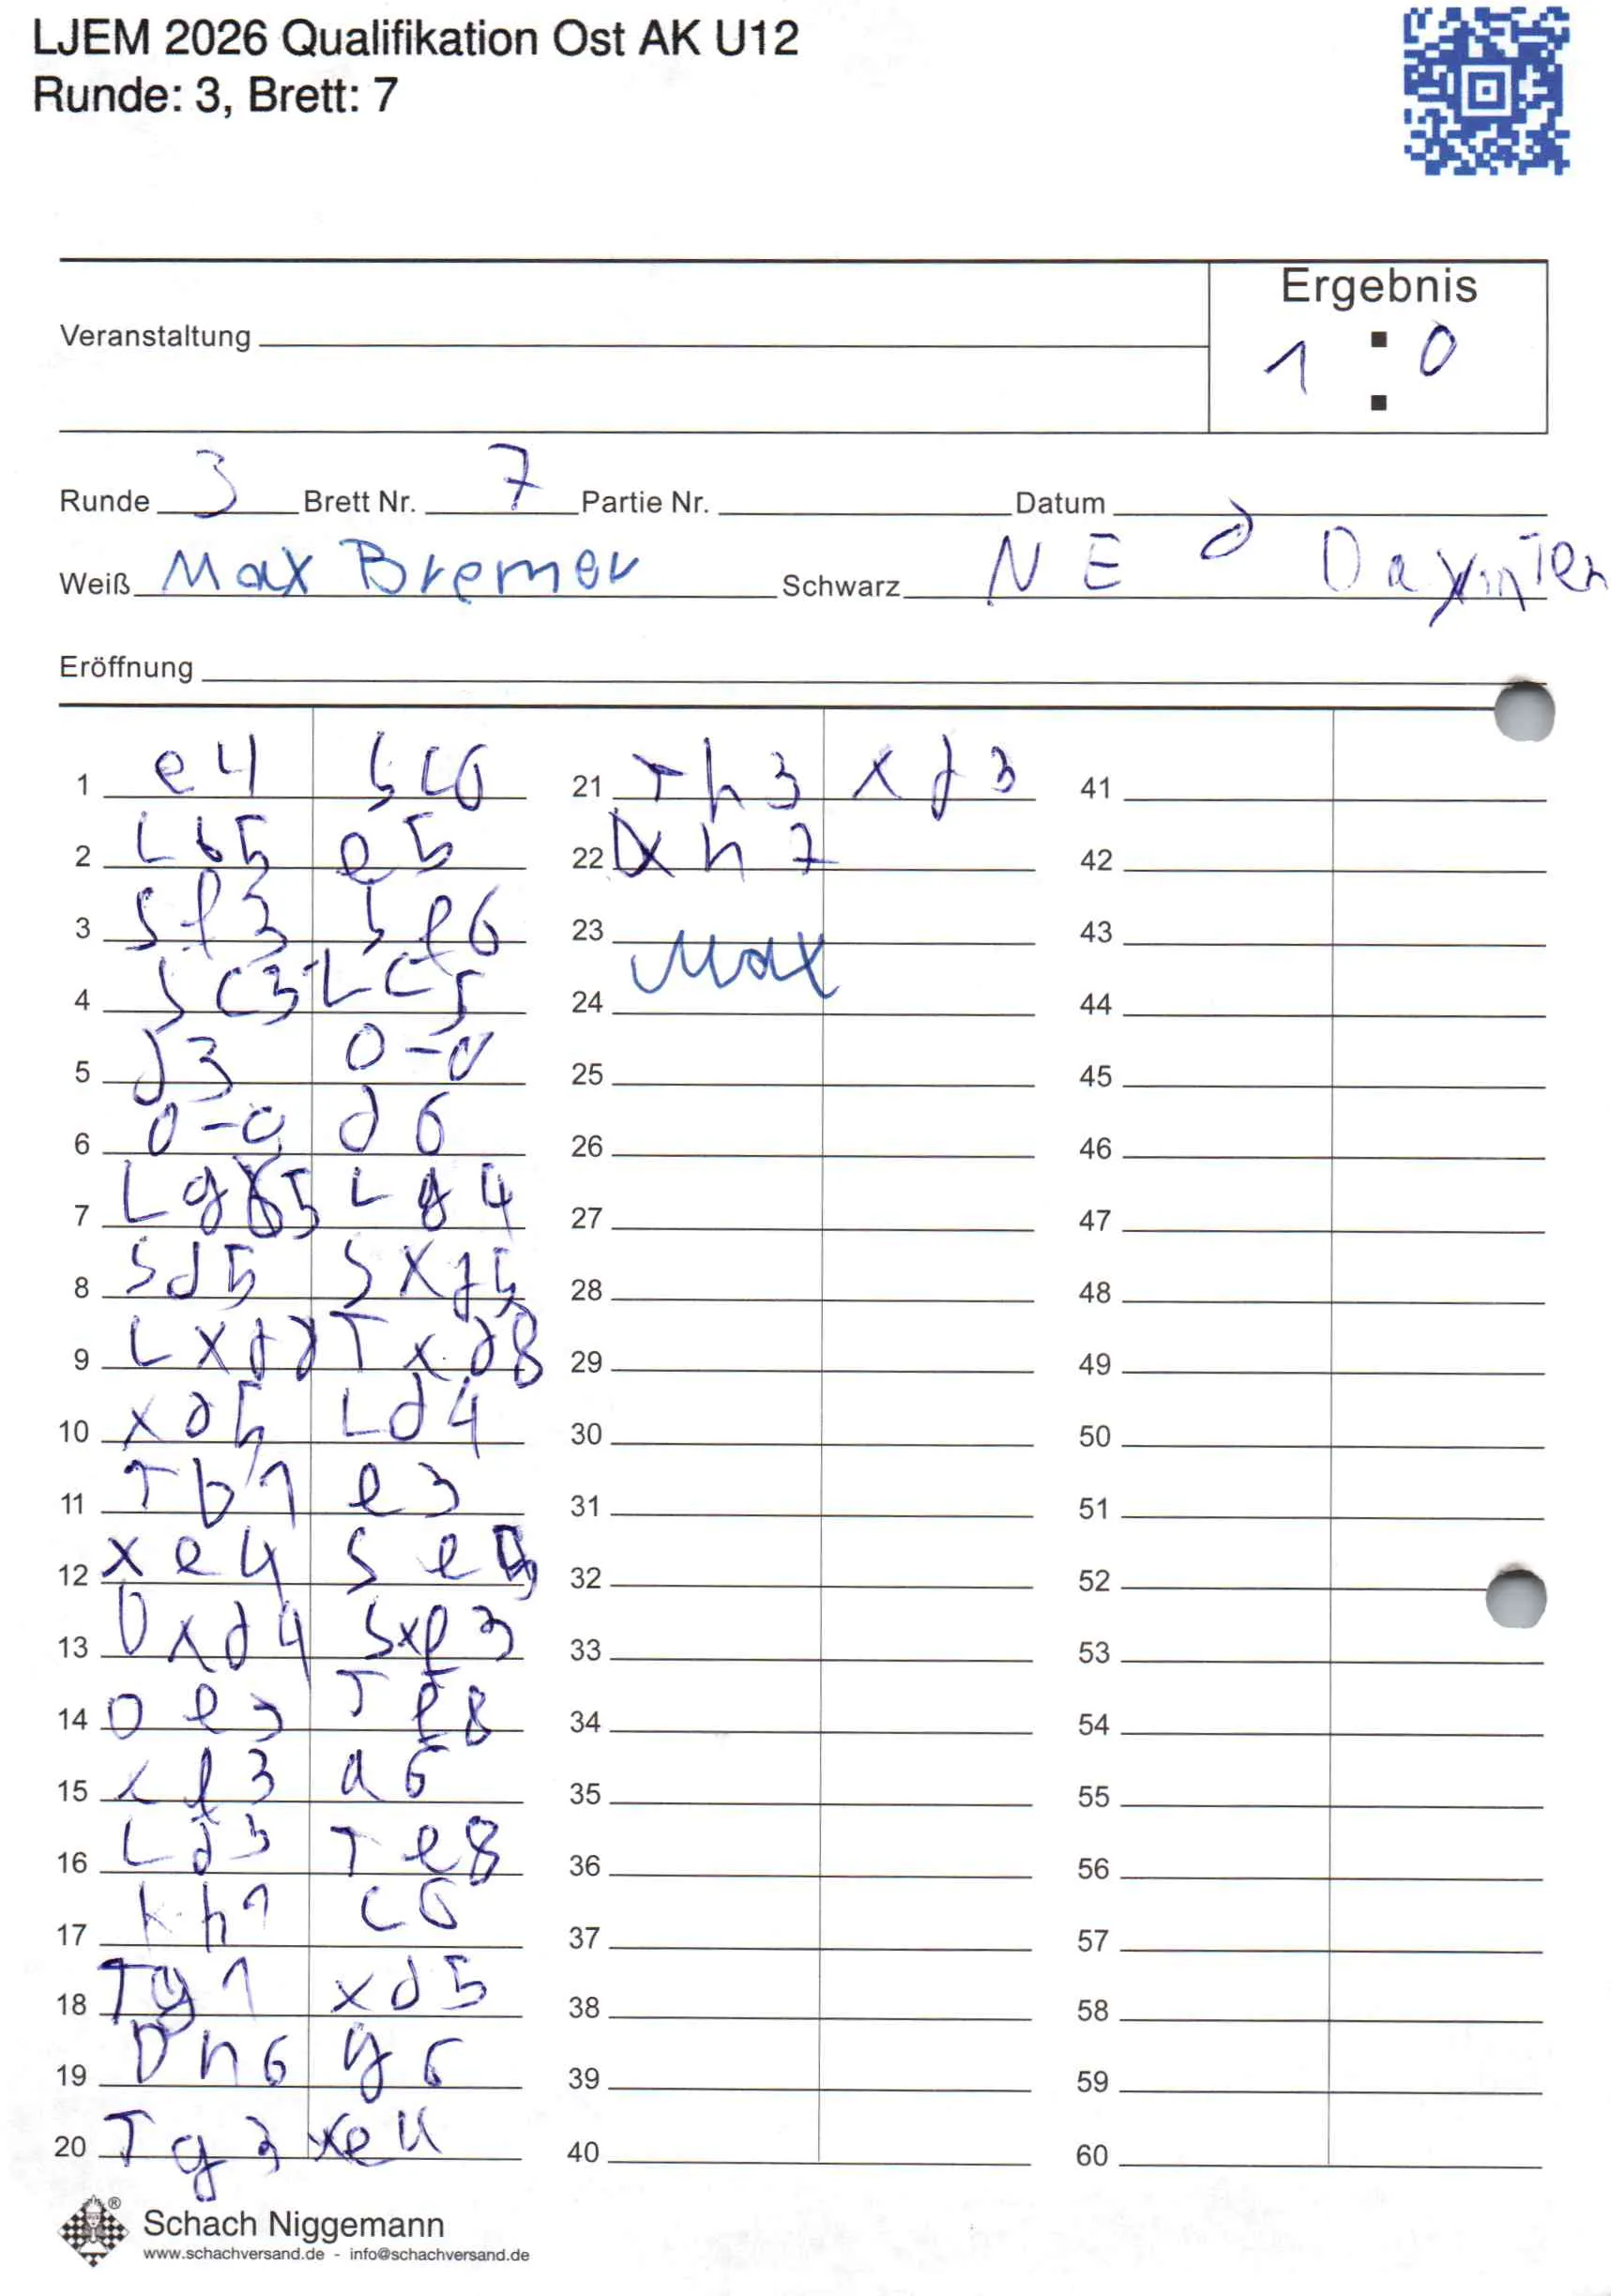 LJEM 2026 Qualifikation Ost AK U12
Runde: 3, Brett: 7
Ergebnis
Veranstaltung
1 : 0
Runde 3 Brett Nr. 7 Partie Nr. Datum
Weiß Max Bremer Schwarz N E d
Eröffnung
1 e4 Sc6
2 Lb5 e5
3 Sf3 Sf6
4 Sc3 Lc5
5 d3 0-0
6 0-0 d6
7 Lg5 Lg4
8 Sd5 Sxd5
9 Lxd8 Txd8
10 xd5 Ld4
11 Tb1 e3
12 xe4 Se5
13 Dxd4 Sxf3
14 De3 Tf8
15 xf3 a6
16 Ld3 Te8
17 Kh1 c6
18 Tg1 xd5
19 Dh6 g6
20 Tg3 xe4
21 Th3 xd3
22 Dxh7
23 Max
24
25
26
27
28
29
30
31
32
33
34
35
36
37
38
39
40
41
42
43
44
45
46
47
48
49
50
51
52
53
54
55
56
57
58
59
60
® Schach Niggemann
www.schachversand.de - info@schachversand.de